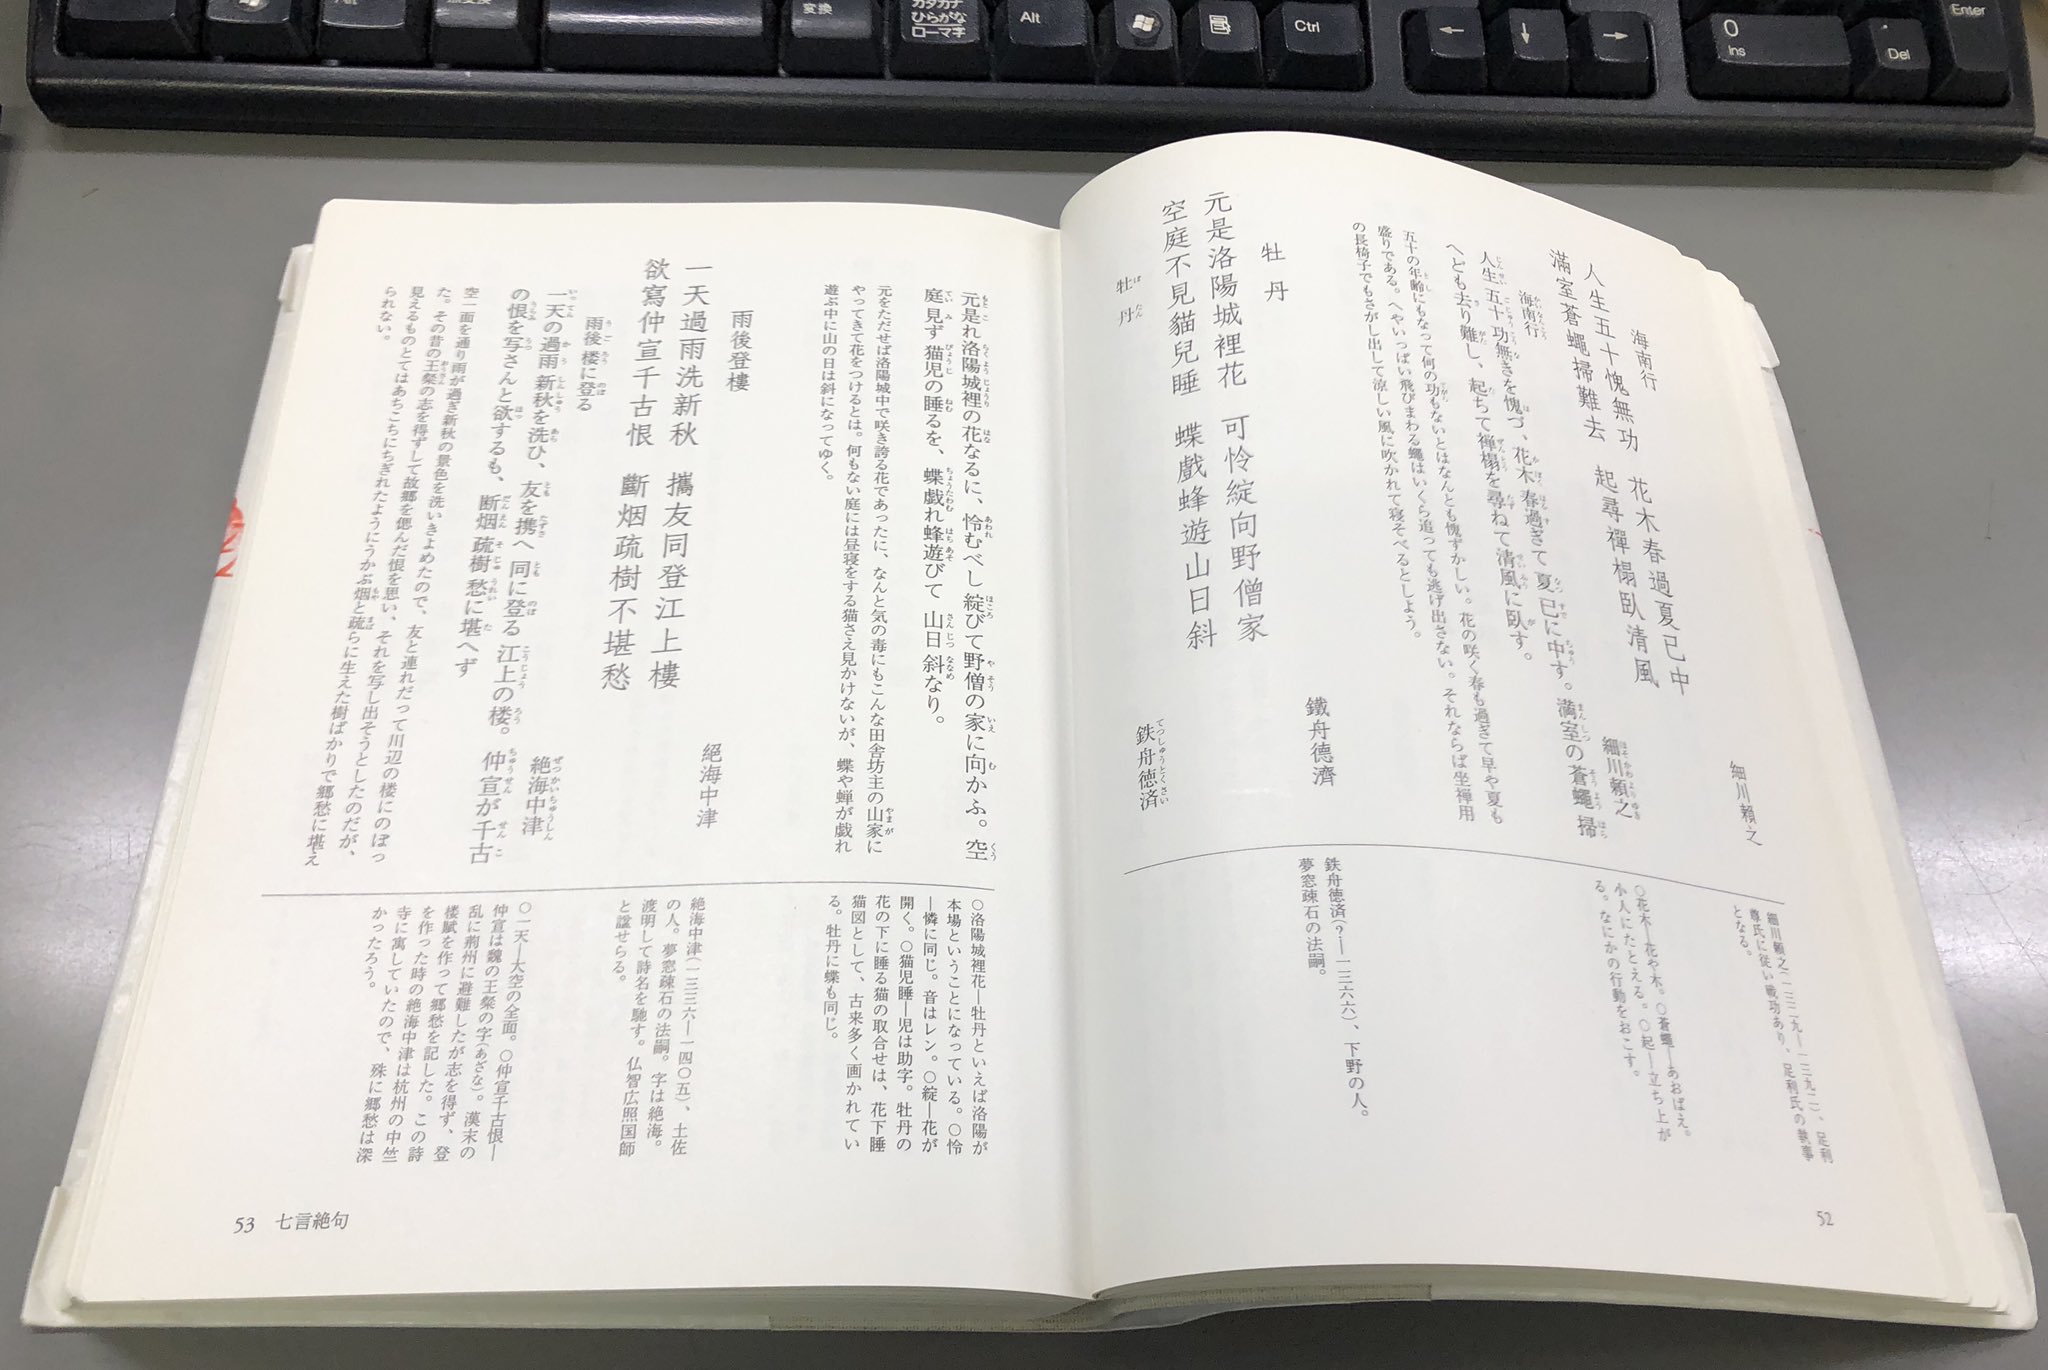 変換
カタカナ
ひらがな
ローマ字
Alt
Ctrl
←
↓
→
0
Ins
.
Del
Enter
海南行
細川頼之
人生五十愧無功　花木春過夏已中
滿室蒼蠅掃難去　起尋禪榻臥清風
海南行
細川頼之
人生五十功無きを愧づ、花木春過ぎて夏已に中す。満室の蒼蠅掃
へども去り難し、起ちて禅榻を尋ねて清風に臥す。
五十の年齢にもなって何の功もないとはなんとも愧ずかしい。花の咲く春も過ぎて早や夏も
盛りである。へやいっぱい飛びまわる蠅はいくら追っても逃げ出さない。それならば坐禅用
の長椅子でもさがし出して涼しい風に吹かれて寝そべるとしよう。
細川頼之(一三二九―一三九二)、足利
尊氏に従い戦功あり、足利氏の執事
となる。
○花木―花や木。○蒼蠅―あおばえ。
小人にたとえる。○起―立ち上が
る。なにかの行動をおこす。
牡丹
鐵舟德濟
元是洛陽城裡花　可怜綻向野僧家
空庭不見貓兒睡　蝶戲蜂遊山日斜
牡丹
鉄舟徳済
鉄舟徳済(?―一三六六)、下野の人。
夢窓疎石の法嗣。
52
元是れ洛陽城裡の花なるに、怜むべし綻びて野僧の家に向かふ。空
庭見ず猫児の睡るを、蝶戯れ蜂遊びて山日斜なり。
元をただせば洛陽城中で咲き誇る花であったに、なんと気の毒にもこんな田舎坊主の山家に
やってきて花をつけるとは。何もない庭には昼寝をする猫さえ見かけないが、蝶や蝉が戯れ
遊ぶ中に山の日は斜になってゆく。
○洛陽城裡花―牡丹といえば洛陽が
本場ということになっている。○怜
―憐に同じ。音はレン。○綻―花が
開く。○猫児睡―児は助字。牡丹の
花の下に睡る猫の取合せは、花下睡
猫図として、古来多く画かれてい
る。牡丹に蝶も同じ。
雨後登樓
絕海中津
一天過雨洗新秋　攜友同登江上樓
欲寫仲宣千古恨　斷烟疏樹不堪愁
雨後楼に登る
絶海中津
一天の過雨新秋を洗ひ、友を携へ同に登る江上の楼。仲宣が千古
の恨を写さんと欲するも、断烟疏樹愁に堪へず
空一面を通り雨が過ぎ新秋の景色を洗いきよめたので、友と連れだって川辺の楼にのぼっ
た。その昔の王粲の志を得ずして故郷を偲んだ恨を思い、それを写し出そうとしたのだが、
見えるものとてはあちこちにちぎれたようにうかぶ烟と疏らに生えた樹ばかりで郷愁に堪え
られない。
絶海中津(一三三六―一四〇五)、土佐
の人。夢窓疎石の法嗣。字は絶海。
渡明して詩名を馳す。仏智広照国師
と諡せらる。
○一天―大空の全面。○仲宣千古恨―
仲宣は魏の王粲の字(あざな)。漢末の
乱に荊州に避難したが志を得ず、登
楼賦を作って郷愁を記した。この詩
を作った時の絶海中津は杭州の中竺
寺に寓していたので、殊に郷愁は深
かったろう。
53　七言絶句